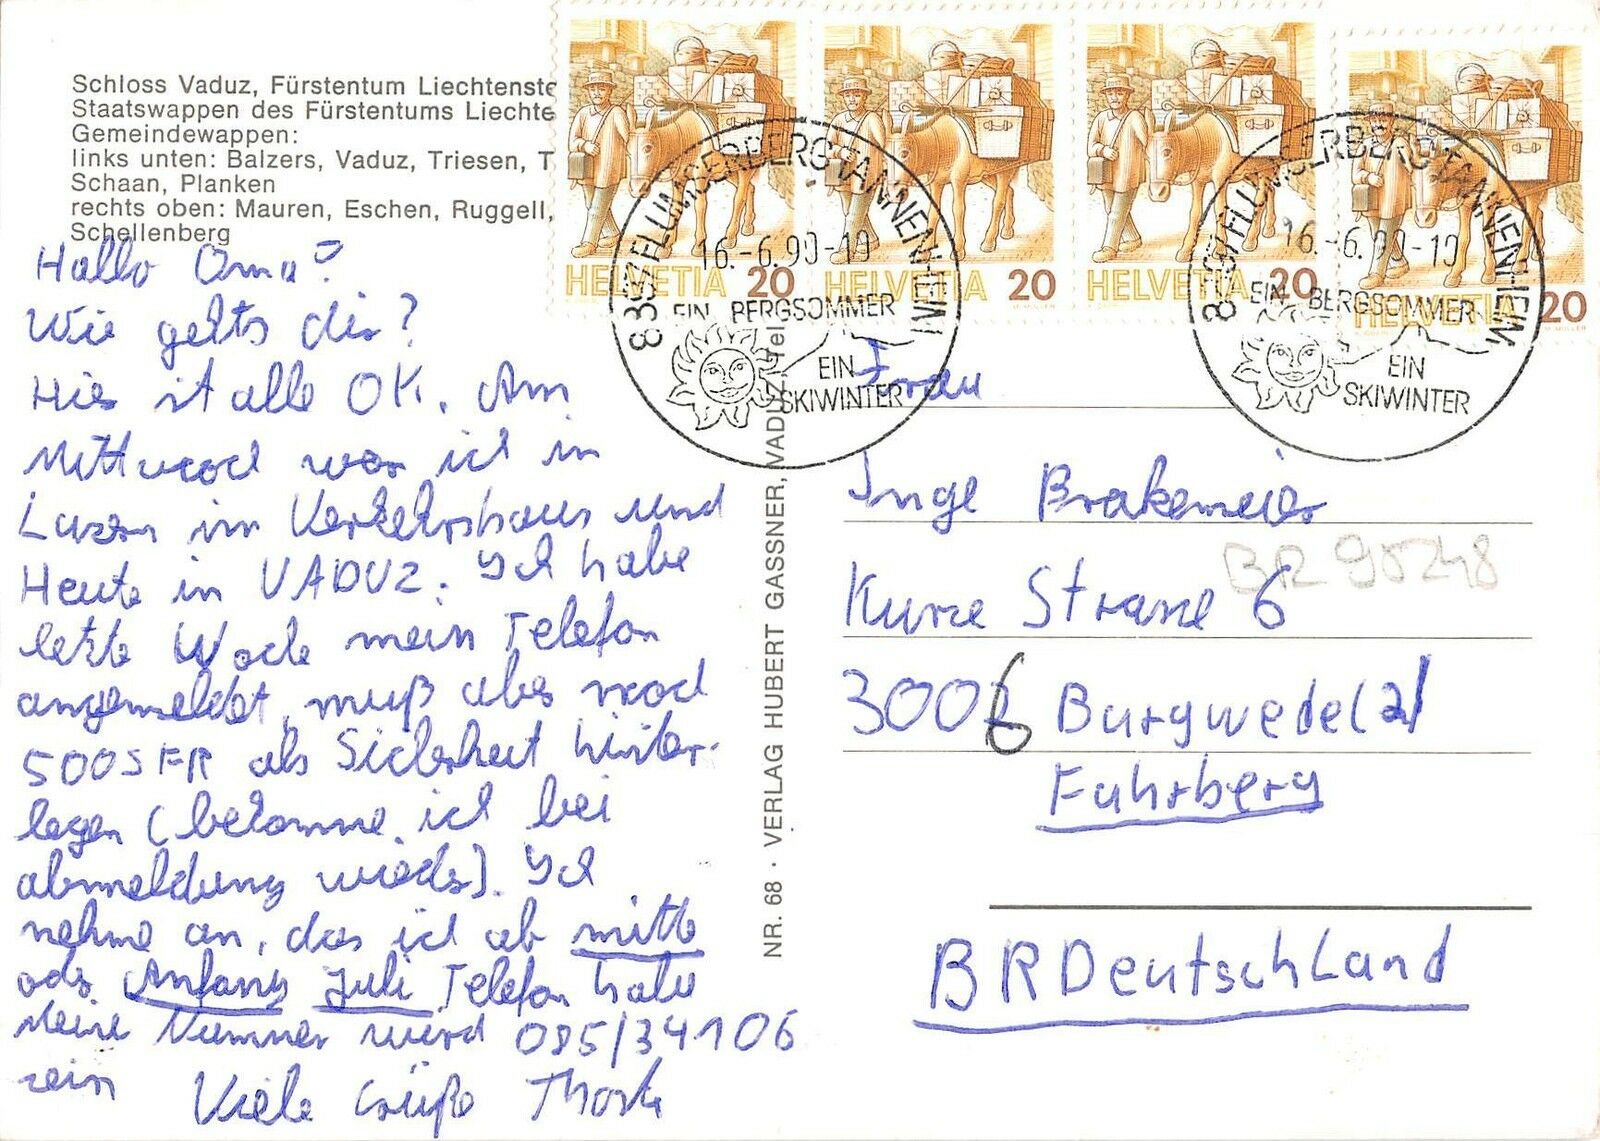 Schloss Vaduz, Fürstentum Liechtenste
Staatswappen des Fürstentums Liechte
Gemeindewappen:
links unten: Balzers, Vaduz, Triesen, T
Schaan, Planken
rechts oben: Mauren, Eschen, Ruggell,
Schellenberg
HELVETIA 20
HELVETIA 20
HELVETIA 20
HELVETIA 20
FLUMSERBERG TANNENHEIM
16.-6.90-19
EIN BERGSOMMER
EIN
SKIWINTER
FLUMSERBERG TANNENHEIM
16.-6.90-19
EIN BERGSOMMER
EIN
SKIWINTER
Hallo Oma!
Wie gehts dir?
Hier ist alle OK. Am
Mittwoch war ich in
Luzern im Verkehrshaus und
Heute in VADUZ. Ich habe
letzte Woche mein Telefon
angemeldet, muß aber noch
500 SFR als Sicherheit hinter-
legen (bekomme ich bei
abmeldung wieder). Ich
nehme an, das ich ab mitte
oder Anfang Juli Telefon habe
Meine Nummer wird 085/34106
sein
Viele Grüße
NR. 68 · VERLAG HUBERT GASSNER, VADUZ, Tel
Frau
Inge Brakemeier
Kurze Strasse 6
3006 Burgwedel 2/
Fuhrberg
BR 90248
BRDeutschland